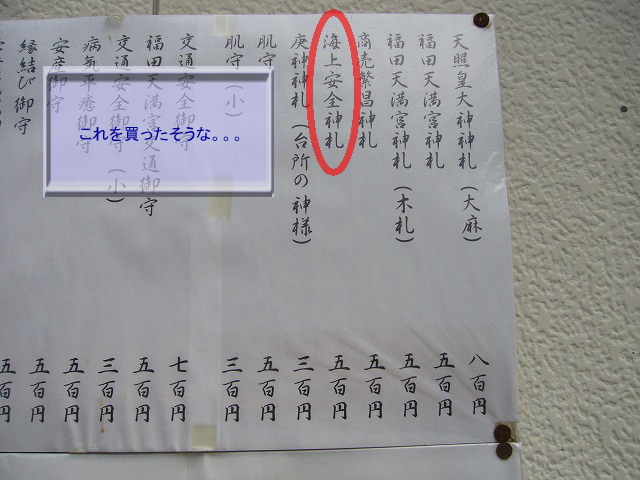 天照皇大神神札（大麻） 八百円
福田天満宮神札 五百円
福田天満宮神札（木札） 五百円
商売繁昌神札 五百円
海上安全神札 五百円
庚神神札（台所の神様） 三百円
肌守 五百円
肌守（小） 三百円
交通安全御守 七百円
福田天満宮交通御守 五百円
交通安全御守（小） 三百円
病気平癒御守 五百円
安産御守 五百円
縁結び御守 五百円
これを買ったそうな。。。